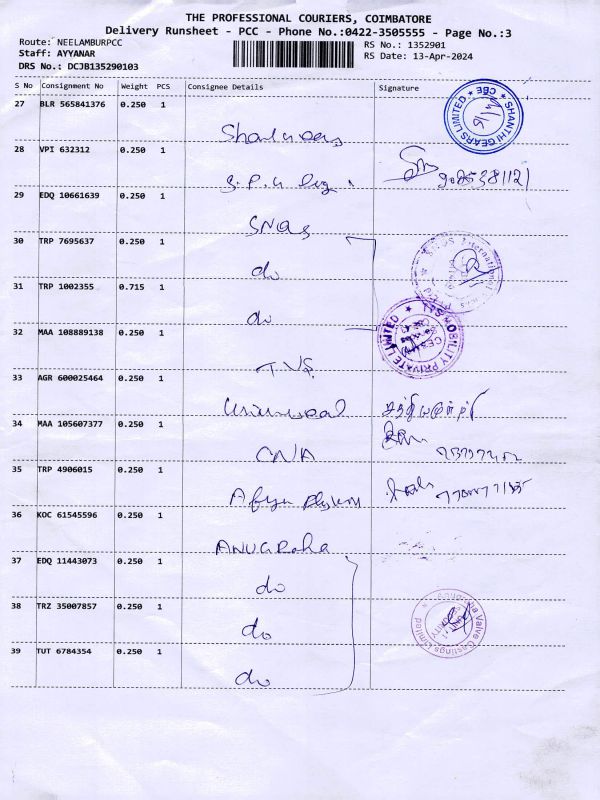 THE PROFESSIONAL COURIERS, COIMBATORE
Delivery Runsheet - PCC - Phone No.:0422-3505555 - Page No.:3
Route: NEELAMBURPCC
RS No.: 1352901
Staff: AYYANAR
RS Date: 13-Apr-2024
DRS No.: DCJB135290103
S No Consignment No Weight PCS Consignee Details Signature
27 BLR 565841376 0.250 1
SHANTHI GEARS LIMITED * CBE *
28 VPI 632312 0.250 1
29 EDQ 10661639 0.250 1
SNQS
30 TRP 7695637 0.250 1
do
31 TRP 1002355 0.715 1
do
32 MAA 108889138 0.250 1
MOBILITY PRIVATE LIMITED
TVS
33 AGR 600025464 0.250 1
Universal
34 MAA 105607377 0.250 1
CNA
35 TRP 4906015 0.250 1
36 KOC 61545596 0.250 1
ANUGRaha
37 EDQ 11443073 0.250 1
do
38 TRZ 35007857 0.250 1
do
Valve Castings Limited
39 TUT 6784354 0.250 1
do